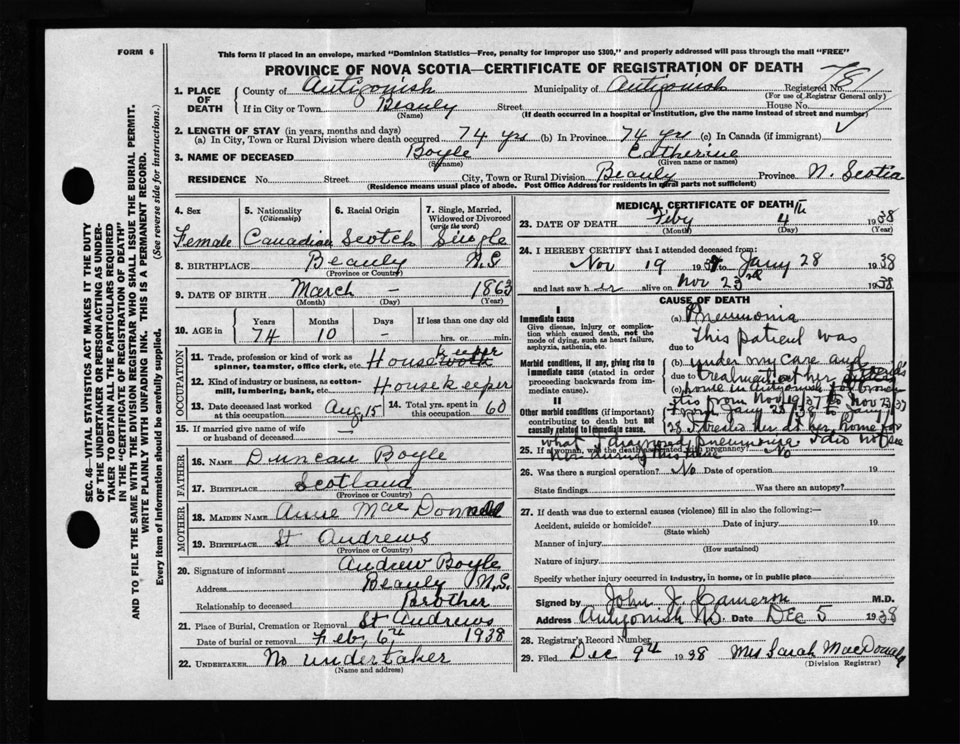 FORM 6
This form if placed in an envelope, marked "Dominion Statistics—Free, penalty for improper use $300," and properly addressed will pass through the mail "FREE"
PROVINCE OF NOVA SCOTIA—CERTIFICATE OF REGISTRATION OF DEATH
1. PLACE OF DEATH County of Antigonish Municipality of Antigonish Registered No. 781
(For use of Registrar General only)
If in City or Town Beauly Street House No.
(Name) (If death occurred in a hospital or institution, give the name instead of street and number)
2. LENGTH OF STAY (in years, months and days)
(a) In City, Town or Rural Division where death occurred 74 yrs (b) In Province 74 yrs (c) In Canada (if immigrant)
3. NAME OF DECEASED Boyle Catherine
(Surname) (Given name or names)
RESIDENCE No. Street City, Town or Rural Division Beauly Province N. Scotia
(Residence means usual place of abode. Post Office Address for residents in rural parts not sufficient)
4. Sex 5. Nationality (Citizenship) 6. Racial Origin 7. Single, Married, Widowed or Divorced (write the word)
Female Canadian Scotch Single
8. BIRTHPLACE Beauly N.S.
(Province or Country)
9. DATE OF BIRTH March – 1863
(Month) (Day) (Year)
10. AGE in Years Months Days If less than one day old
74 10 – hrs. or min.
OCCUPATION
11. Trade, profession or kind of work as spinner, teamster, office clerk, etc. Housekeeper
12. Kind of industry or business, as cotton-mill, lumbering, bank, etc. Housekeeper
13. Date deceased last worked at this occupation Aug 15 14. Total yrs. spent in this occupation 60
15. If married give name of wife or husband of deceased –
FATHER
16. NAME Duncan Boyle
17. BIRTHPLACE Scotland
(Province or Country)
MOTHER
18. MAIDEN NAME Annie MacDonald
19. BIRTHPLACE St Andrews
(Province or Country)
20. Signature of informant Andrew Boyle
Address Beauly N.S.
Relationship to deceased Brother
21. Place of Burial, Cremation or Removal St Andrews
Date of burial or removal Feb, 6th 1938
22. UNDERTAKER No undertaker
(Name and address)
MEDICAL CERTIFICATE OF DEATH
23. DATE OF DEATH Feby 4th 1938
(Month) (Day) (Year)
24. I HEREBY CERTIFY that I attended deceased from:
Nov 19 1937 to Jany 28 1938
and last saw her alive on Nov 23rd 1938
CAUSE OF DEATH
I
Immediate cause
Give disease, injury or complication which caused death, not the mode of dying, such as heart failure, asphyxia, asthenia, etc.
(a) Pneumonia
This patient was
due to
Morbid conditions, if any, giving rise to immediate cause (stated in order proceeding backwards from immediate cause).
(b) under my care and
due to treatment at her friends
(c) home in Antigonish for
from Nov 19/37 to Nov 23/37
II
Other morbid conditions (if important) contributing to death but not causally related to immediate cause.
From Jany 23/38 to Jany
28 I treated her at her home for
what I diagnosed pneumonia I did not see
25. If a woman, was the death associated with pregnancy? No
26. Was there a surgical operation? No Date of operation 19
State findings Was there an autopsy?
27. If death was due to external causes (violence) fill in also the following:—
Accident, suicide or homicide? Date of injury 19
(State which)
Manner of injury
(How sustained)
Nature of injury
Specify whether injury occurred in industry, in home, or in public place
Signed by John J. Cameron M.D.
Address Antigonish NS. Date Dec 5 1938
28. Registrar's Record Number
29. Filed Dec 9th 1938 Mrs Sarah MacDonald
(Division Registrar)
SEC. 46—VITAL STATISTICS ACT MAKES IT THE DUTY
OF THE UNDERTAKER OR PERSON ACTING AS UNDER-
TAKER TO OBTAIN ALL THE PARTICULARS REQUIRED
IN THE "CERTIFICATE OF REGISTRATION OF DEATH"
AND TO FILE THE SAME WITH THE DIVISION REGISTRAR WHO SHALL ISSUE THE BURIAL PERMIT.
WRITE PLAINLY WITH UNFADING INK. THIS IS A PERMANENT RECORD.
Every item of information should be carefully supplied. (See reverse side for instructions.)